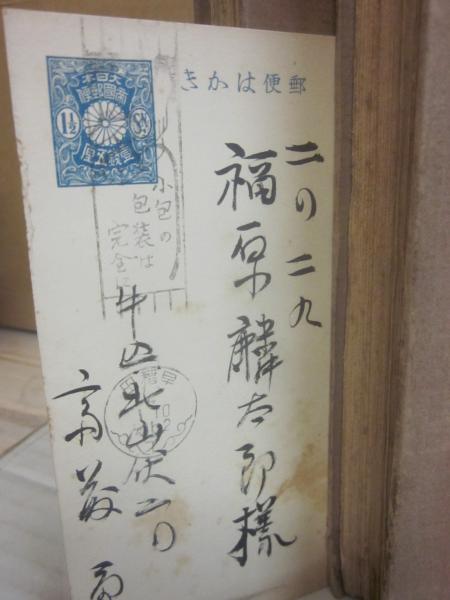 郵便はかき
大日本
帝國郵便
1½
Sⁿ
壹銭五厘
小包の
包装は
完全に
二ノ二九
福原麟太郎様
牛込北山伏二〇
斎藤勇